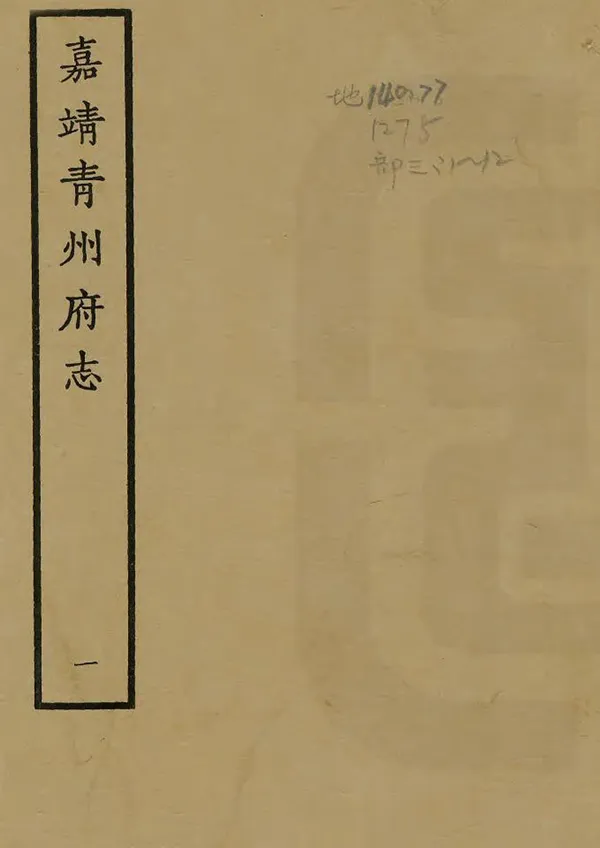 嘉靖青州府志
一
地140.77
1275
部三:1~12